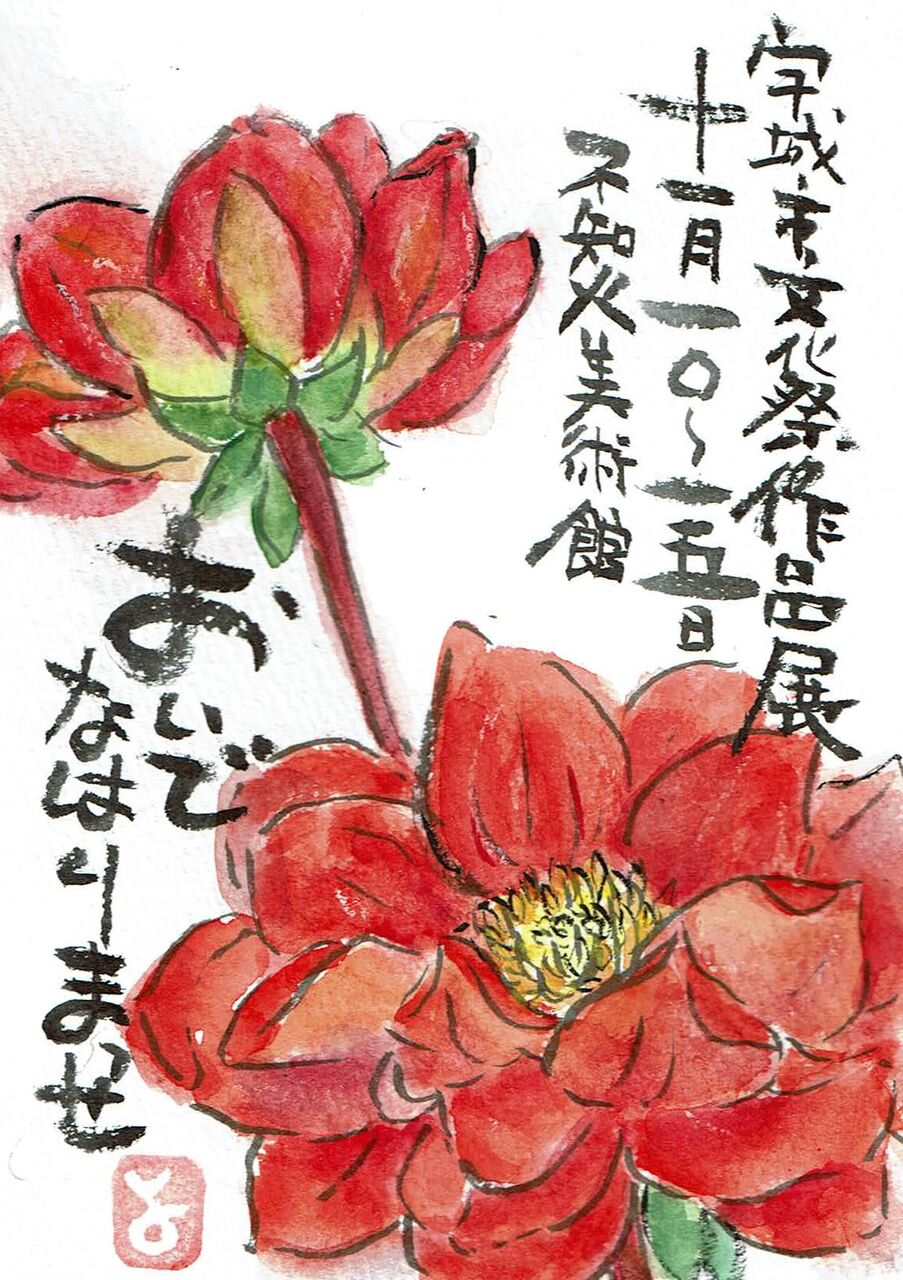 宇城市文化祭作品展
十一月一〇~一五日
不知火美術館
おいで
なはりませ
と